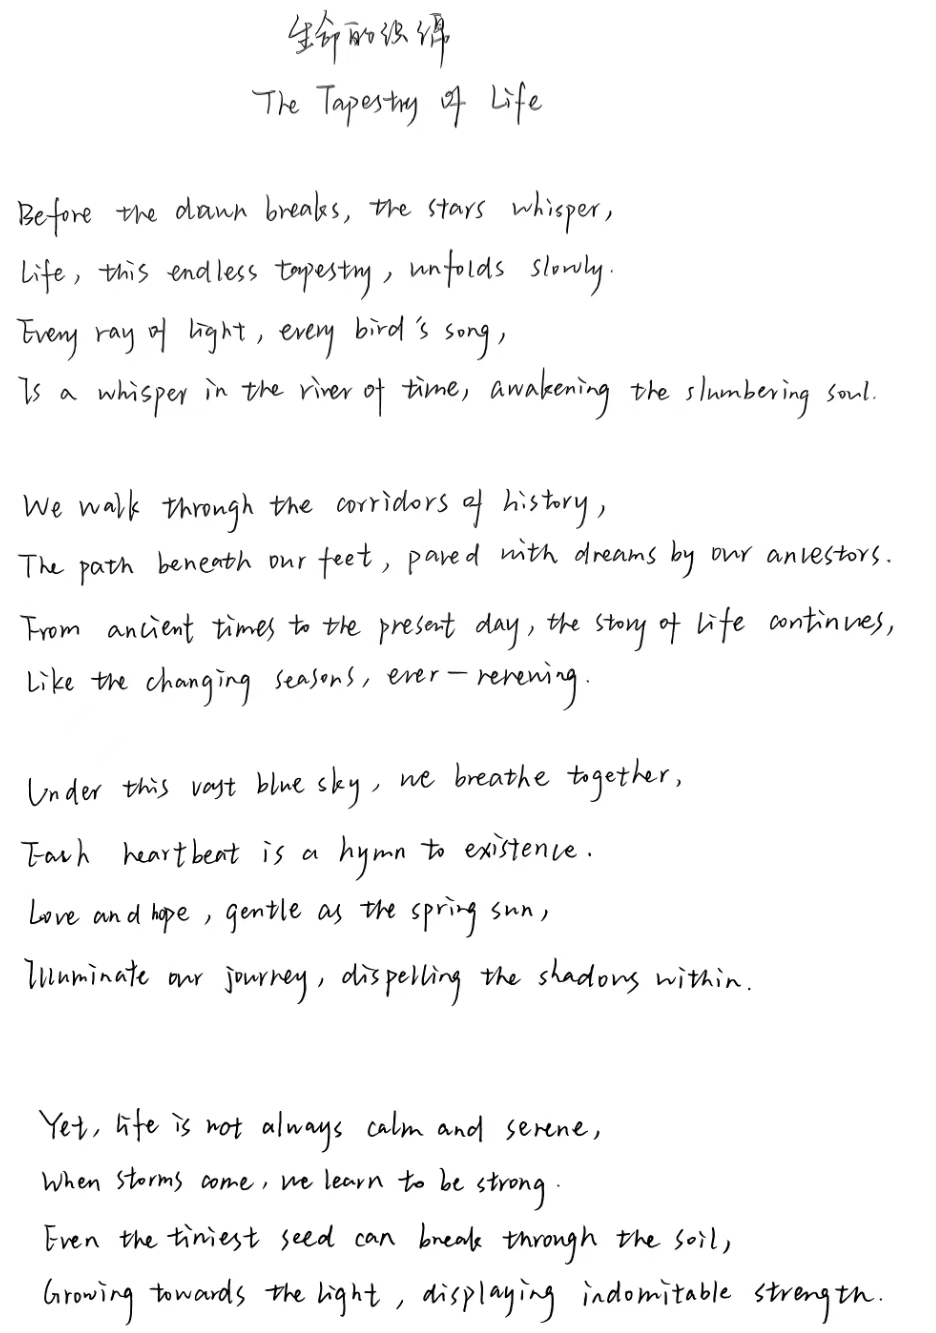 生命的织锦
The Tapestry of Life
Before the dawn breaks, the stars whisper,
Life, this endless tapestry, unfolds slowly.
Every ray of light, every bird's song,
Is a whisper in the river of time, awakening the slumbering soul.
We walk through the corridors of history,
The path beneath our feet, paved with dreams by our ancestors.
From ancient times to the present day, the story of life continues,
Like the changing seasons, ever-renewing.
Under this vast blue sky, we breathe together,
Each heartbeat is a hymn to existence.
Love and hope, gentle as the spring sun,
Illuminate our journey, dispelling the shadows within.
Yet, life is not always calm and serene,
When storms come, we learn to be strong.
Even the tiniest seed can break through the soil,
Growing towards the light, displaying indomitable strength.